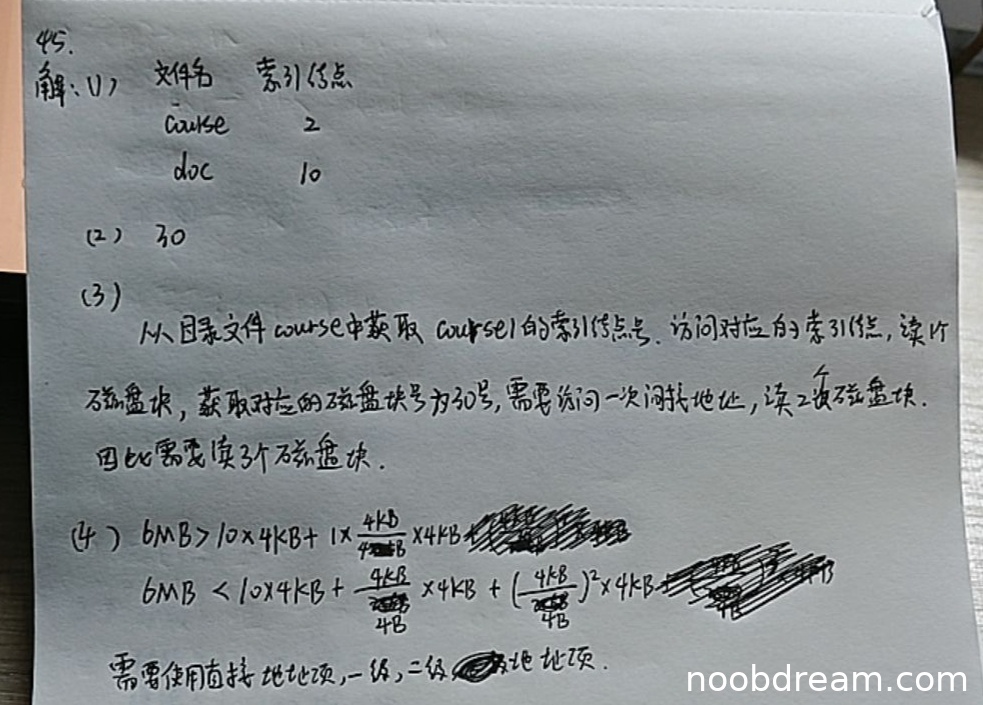 45.
解: (1) 文件名 索引结点
course 2
doc 10
(2) 30
(3)
从目录文件course中获取 course1的索引结点号. 访问对应的索引结点, 读1个
磁盘块, 获取对应的磁盘块号为30号, 需要访问一次间接地址, 读2个磁盘块.
因此需要读3个磁盘块.
(4) 6MB>10×4KB+1×4KB/4B×4KB
6MB <10×4KB+4KB/4B×4KB+(4KB/4B)²×4KB
需要使用直接地址项, 一级, 二级地址项.
noobdream.com